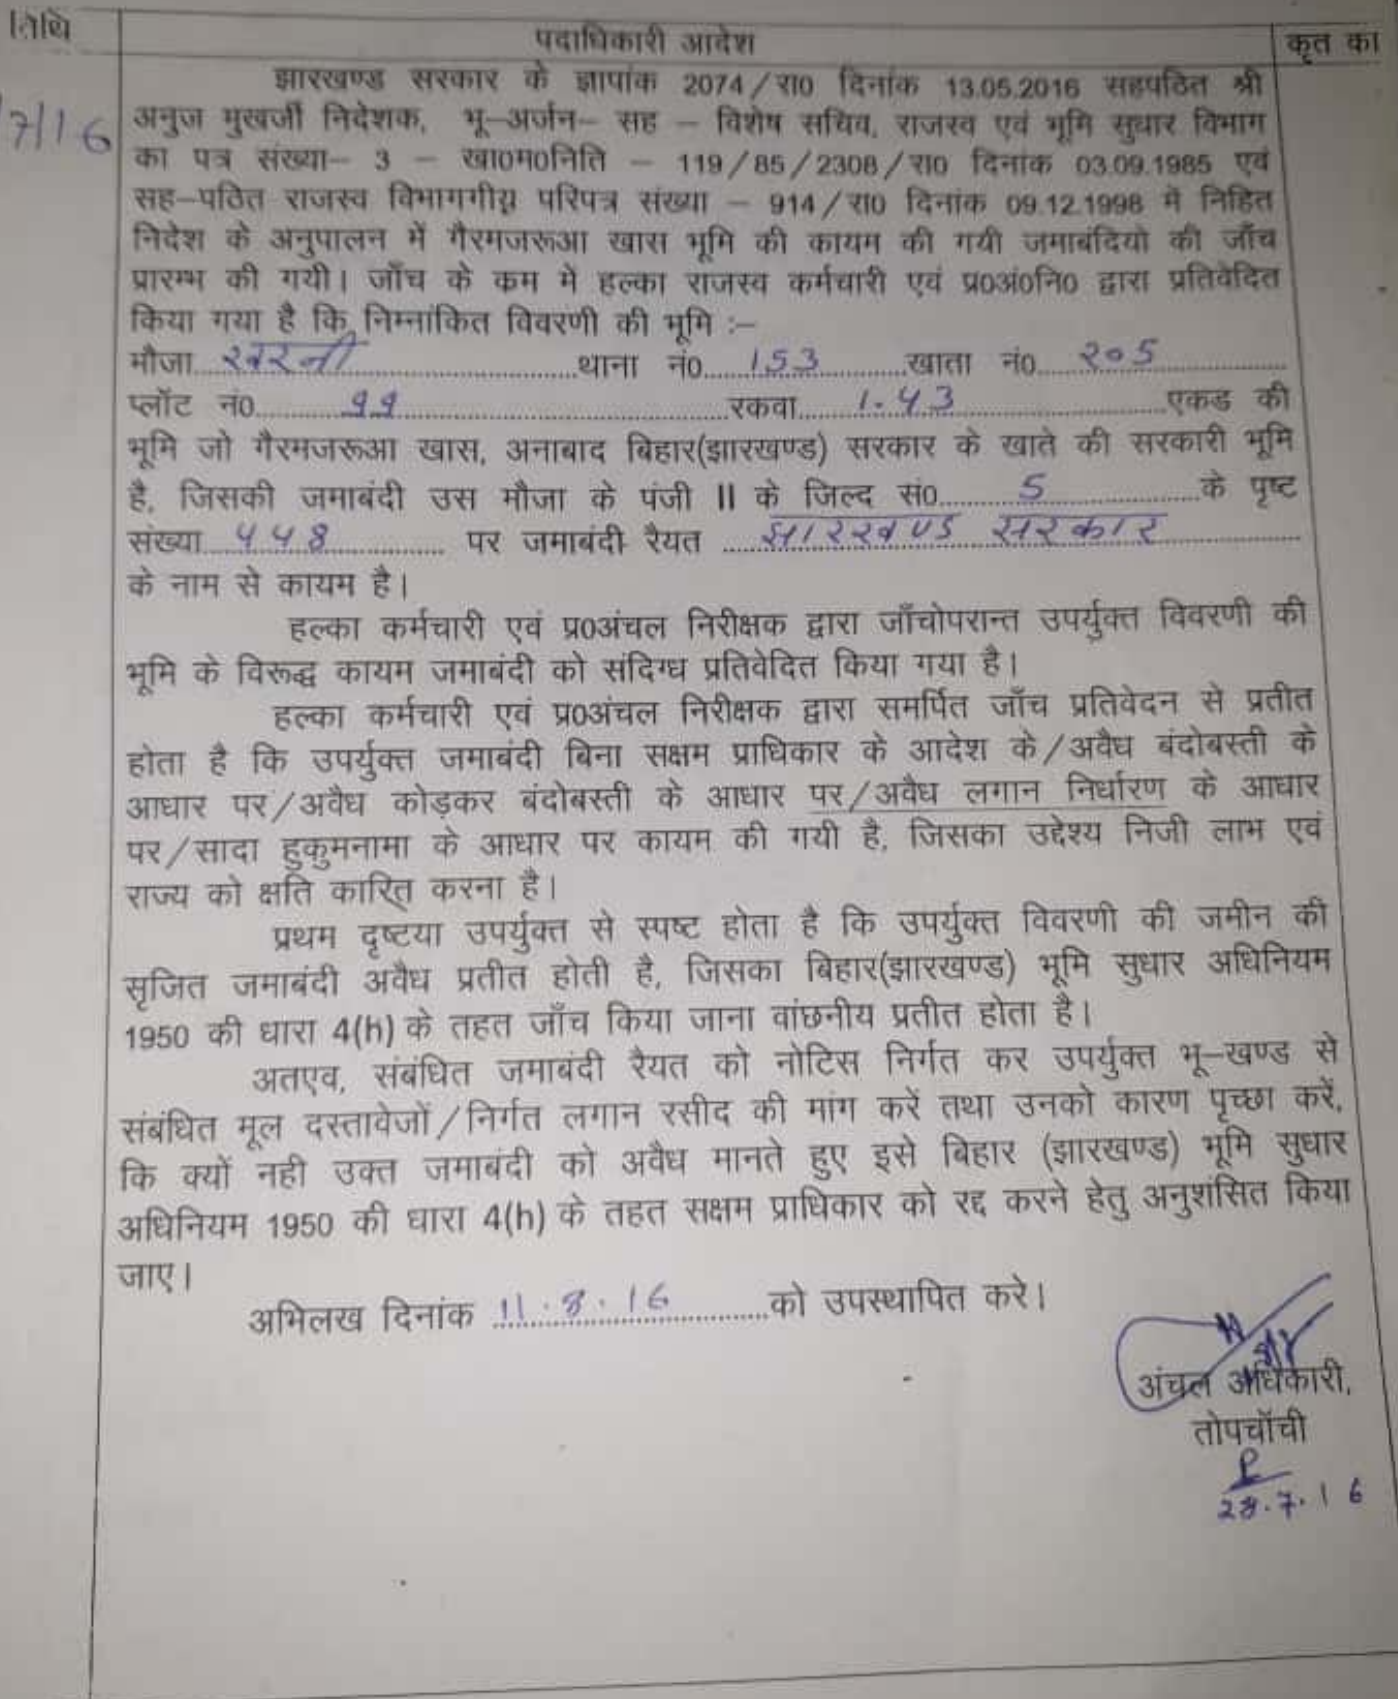 तिथि
पदाधिकारी आदेश
कृत का
7/16
झारखण्ड सरकार के ज्ञापांक 2074/रा0 दिनांक 13.05.2016 सहपठित श्री
अनुज मुखर्जी निदेशक, भू-अर्जन- सह - विशेष सचिव, राजस्व एवं भूमि सुधार विभाग
का पत्र संख्या- 3 - खा0म0निति - 119/85/2308/रा0 दिनांक 03.09.1985 एवं
सह-पठित राजस्व विभागगीय परिपत्र संख्या - 914/रा0 दिनांक 09.12.1998 में निहित
निदेश के अनुपालन में गैरमजरूआ खास भूमि की कायम की गयी जमाबंदियो की जाँच
प्रारम्भ की गयी। जाँच के कम मे हल्का राजस्व कर्मचारी एवं प्र0अं0नि0 द्वारा प्रतिवेदित
किया गया है कि निम्नांकित विवरणी की भूमि :-
मौजा खरनी थाना नं0 153 खाता नं0 २०5
प्लॉट नं0 99 रकवा 1.43 एकड की
भूमि जो गैरमजरूआ खास, अनाबाद बिहार(झारखण्ड) सरकार के खाते की सरकारी भूमि
है, जिसकी जमाबंदी उस मौजा के पंजी II के जिल्द सं0 5 के पृष्ट
संख्या 448 पर जमाबंदी रैयत झारखण्ड सरकार
के नाम से कायम है।
हल्का कर्मचारी एवं प्र0अंचल निरीक्षक द्वारा जाँचोपरान्त उपर्युक्त विवरणी की
भूमि के विरूद्ध कायम जमाबंदी को संदिग्ध प्रतिवेदित किया गया है।
हल्का कर्मचारी एवं प्र0अंचल निरीक्षक द्वारा समर्पित जाँच प्रतिवेदन से प्रतीत
होता है कि उपर्युक्त जमाबंदी बिना सक्षम प्राधिकार के आदेश के/अवैध बंदोबस्ती के
आधार पर/अवैध कोड़कर बंदोबस्ती के आधार पर/अवैध लगान निर्धारण के आधार
पर/सादा हुकुमनामा के आधार पर कायम की गयी है, जिसका उद्देश्य निजी लाभ एवं
राज्य को क्षति कारित् करना है।
प्रथम दृष्टया उपर्युक्त से स्पष्ट होता है कि उपर्युक्त विवरणी की जमीन की
सृजित जमाबंदी अवैध प्रतीत होती है, जिसका बिहार(झारखण्ड) भूमि सुधार अधिनियम
1950 की धारा 4(h) के तहत जाँच किया जाना वांछनीय प्रतीत होता है।
अतएव, संबंधित जमाबंदी रैयत को नोटिस निर्गत कर उपर्युक्त भू-खण्ड से
संबंधित मूल दस्तावेजों/निर्गत लगान रसीद की मांग करें तथा उनको कारण पृच्छा करें,
कि क्यों नही उक्त जमाबंदी को अवैध मानते हुए इसे बिहार (झारखण्ड) भूमि सुधार
अधिनियम 1950 की धारा 4(h) के तहत सक्षम प्राधिकार को रद्द करने हेतु अनुशंसित किया
जाए।
अभिलख दिनांक 11.8.16 को उपस्थापित करे।
अंचल अधिकारी,
तोपचाँची
28.7.16